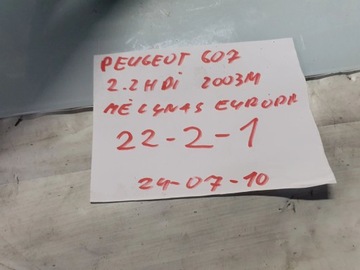 PEUGEOT 607
2.2 HDi 2003M
MĖLYNAS EUROPA
22-2-1
24-07-10